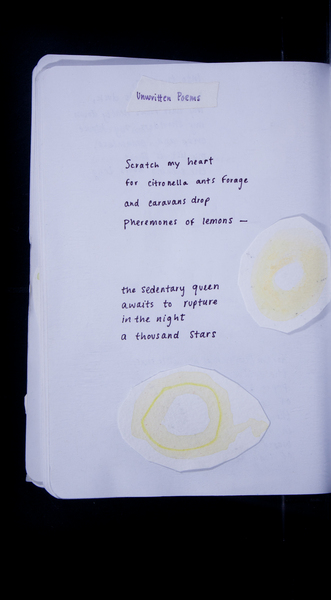 Unwritten Poems
Scratch my heart
for citronella ants forage
and caravans drop
pheremones of lemons —
the sedentary queen
awaits to rupture
in the night
a thousand stars